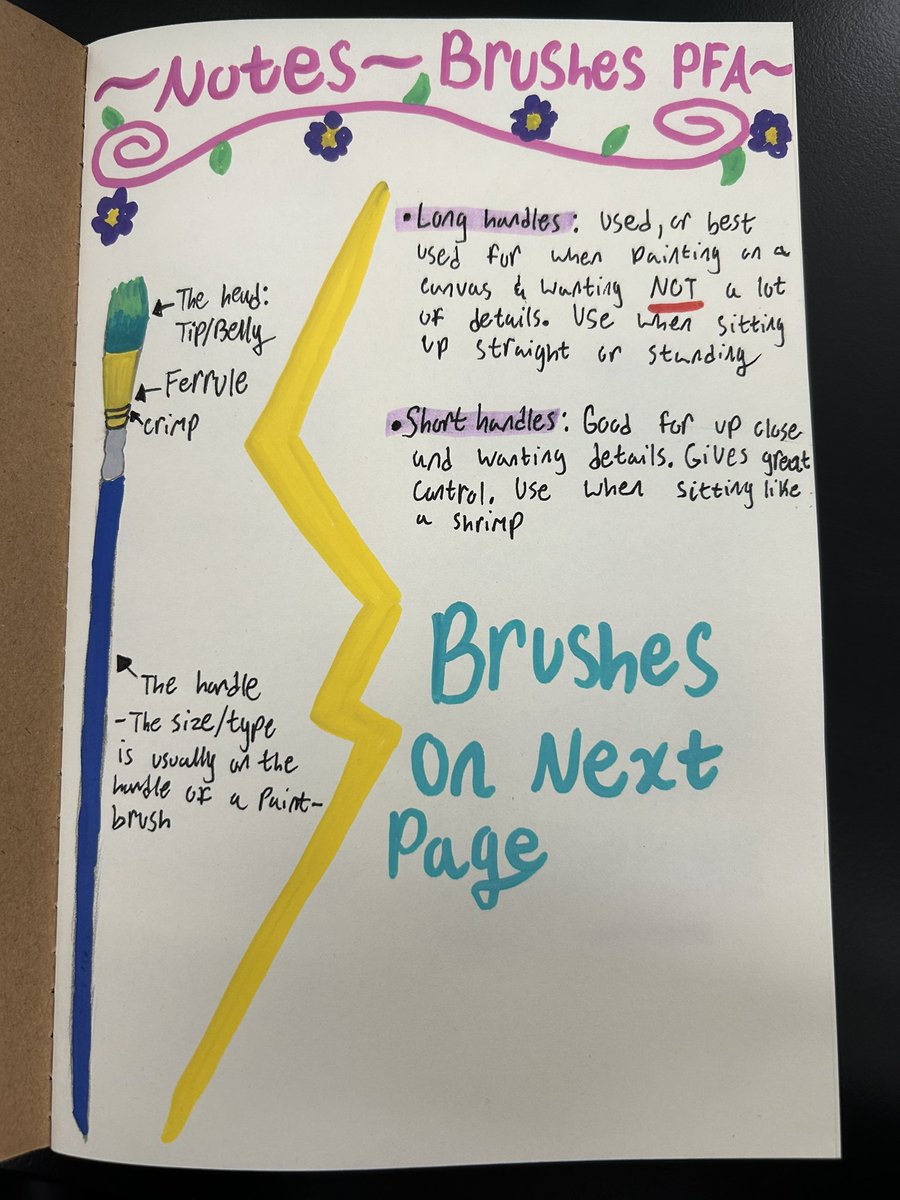 ~Notes~ Brushes PFA~
The head:
Tip/Belly
Ferrule
crimp
The handle
-The size/type
is usually on the
handle of a Paint-
brush
•Long handles: Used, or best
used for when painting on a
canvas & wanting NOT a lot
of details. Use when sitting
up straight or standing
•Short handles: Good for up close
and wanting details. Gives great
control. Use when sitting like
a shrimp
Brushes
On Next
Page